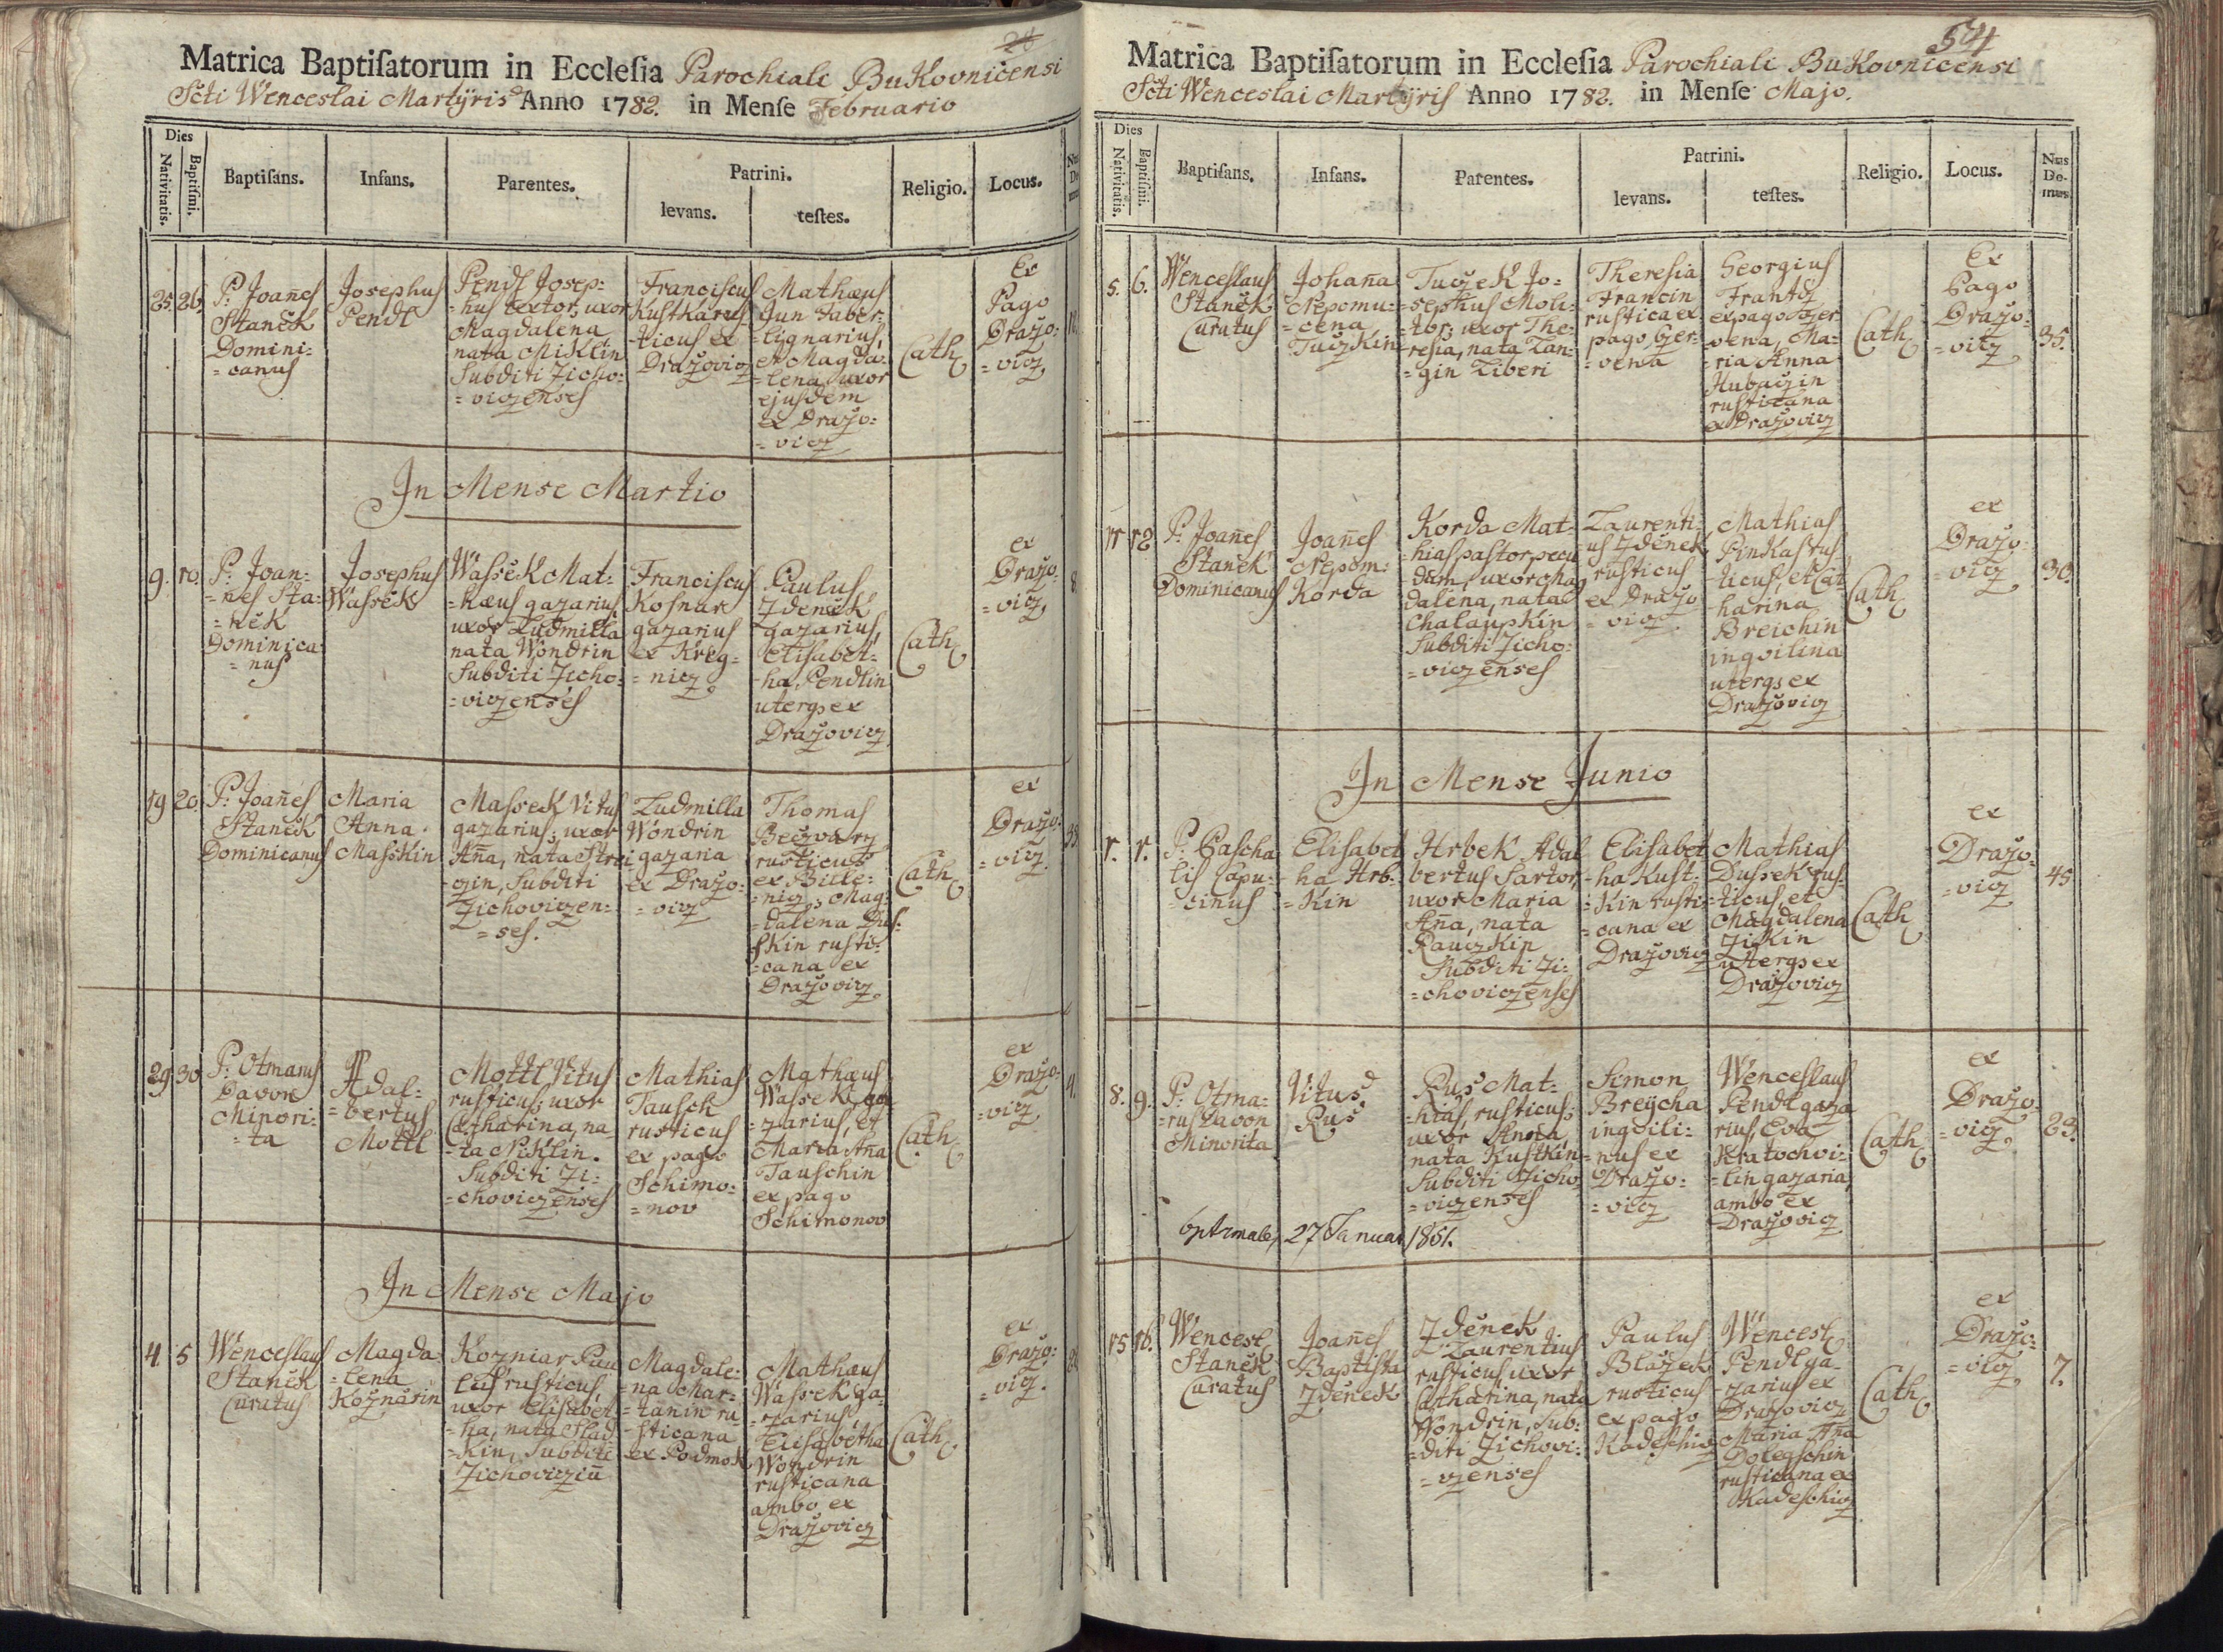 28
Matrica Baptisatorum in Ecclesia Parochiali BuKovnicensi
Scti Wenceslai Martyris Anno 1782. in Mense Februario
Dies
Nativitatis.
Baptismi.
Baptisans.
Infans.
Parentes.
Patrini.
levans.
testes.
Religio.
Locus.
25. 26.
P: Joañes
Staněk
Domini:
=canus
Josephus
Pendl
Pendl Josep:
=hus textor, uxor
Magdalena
nata Miklin
Subditi Zicho:
=viczenses
Franciscus
Kustka rus
=ticus ex
Drazovicz
Mathæus
Jun Faber-
=lignarius,
et Magda:
=lena uxor
ejusdem
ex Drazo:
=vicz
Cath
Ex
Pago
Drazo:
=vicz
In Mense Martio
9. 10.
P: Joan:
=nes Sta:
=něk
Dominica
=nus
Josephus
Wassek
Wassek Mat-
=hæus gazarius
uxor Ludmilla
nata Wondrin
Subditi Zicho:
=viczenses
Franciscus
Kosnar
gazarius
ex Kreg=
=nicz
Paulus
Zdeněk
gazarius,
Elisabet-
=ha Pendlin
uterqs ex
Drazovicz
Cath
ex
Drazo:
=vicz
8
19 20
P: Joañes
Staněk
Dominicanus
Maria
Anna
Masskin
Massek Vitus
gazarius, uxor
Aña, nata Strei
=czin, Subditi
Zichoviczen:
=ses.
Ludmilla
Wondrin
gazaria
ex Drazo:
=vicz
Thomas
Beczvarz
rusticus
ex Bille:
=nicz, Mag:
=dalena Dus:
skin rusti:
=cana ex
Drazovicz
Cath
ex
Drazo:
=vicz
29 30
P: Otmarus
Pavon
Minori:
=ta
Adal:
=bertus
Mottl
Mottl Vitus
rusticus, uxor
Catharina, na
=ta Niklin.
Subditi Zi:
=choviczenses
Mathias
Tausch
rusticus
ex pago
Schimo:
=nov
Mathæus
Wassek ga
=zarius, et
Maria Aña
Tauschin
ex pago
Schimonov
Cath
ex
Drazo:
=vicz
4.
In Mense Majo
4 5
Wenceslaus
Staněk
Curatus
Magda
=lena
Koznarin
Kozniar Pau
lus rusticus,
uxor Elisabet
=ha, nata Slad
=kin, Subditi
Zichovicziũ
Magdale:
=na Mar:
=tanin ru
=sticana
ex Podmok
Mathæus
Wassek ga
=zarius,
Elisabetha
Wondrin
rusticana
ambo ex
Drazovicz
Cath
ex
Drazo:
=vicz.
54
Matrica Baptisatorum in Ecclesia Parochiali BuKovnicensi
Scti Wenceslai Martyris Anno 1782. in Mense Majo.
Dies
Nativitatis.
Baptismi.
Baptisans.
Infans.
Parentes.
Patrini.
levans.
testes.
Religio.
Locus.
Nrus
Do-
mus
5. 6.
Wenceslaus
Staněk
Curatus
Johaña
Nepomu:
=cena
Tuczkin
Tuczek Jo:
=sephus Moli:
=tor; uxor The:
=resia, nata Lan:
=gin Liberi
Theresia
Francin
rustica ex
pago Czer:
=vena
Georgius
Frantz
ex pago Czer
=vena, Ma:
=ria Anna
Hubaczin
rusticana
ex Drazovicz
Cath
Ex
Pago
Drazo:
=vicz
35.
11 12
P: Joañes
Staněk
Dominicanus
Joañes
Nepom:
Korda
Korda Mat:
=hias pastor pecu
=dum, uxor Mag
dalena, nata
Chalaupkin
Subditi Zicho:
=viczenses
Laurenti:
us Zdenek
rusticus
ex Drazo
=vicz
Mathias
Pinkas rus
=ticus, et Cat
=harina
Breichin
inqvilina
uterqs ex
Drazovicz
Cath
ex
Drazo:
=vicz
30.
In Mense Junio
1. 1.
P: Pascha
lis Capu:
=cinus
Elisabet
=ha Hrb:
=kin
Hrbek Adal
bertus Sartor,
uxor Maria
Aña, nata
Rauczkin
Subditi Zi:
=choviczenses
Elisabet
=ha Kust:
=kin rusti:
=cana ex
Drazovicz
Mathias
Dussek rus:
=ticus, et
Magdalena
Zikin
uterqs ex
Drazovicz
Cath
ex
Drazo:
=vicz
45
8. 9.
P: Otma:
=rus Pavon
Minorita
Vitus
Rus
Rus Mat:
=hias, rusticus;
uxor Anna,
nata Kustkin
Subditi Zicho
=viczenses
Simon
Breycha
inqvili:
=nus ex
Drazo:
=vicz
Wenceslaus
Pendl gaza
rius, Eva
Kratochvi:
=lin gazaria,
ambo ex
Drazovicz
Cath
ex
Drazo:
=vicz
23.
27 Januar 1851.
15 16.
Wencesl
Staněk
Curatus
Joañes
Baptista
Zdeněk
Zdeněk
Laurentius
rusticus uxor
Catharina, nata
Wondrin, Sub:
=diti Zichovi:
=czenses
Paulus
Blazek
rusticus
ex pago
Kadeschicz
Wencesl
Pendl ga-
zarius ex
Drazovicz
Maria Aña
Dolegschin
rusticana ex
Kadeschicz
Cath
ex
Drazo:
=vicz
7.